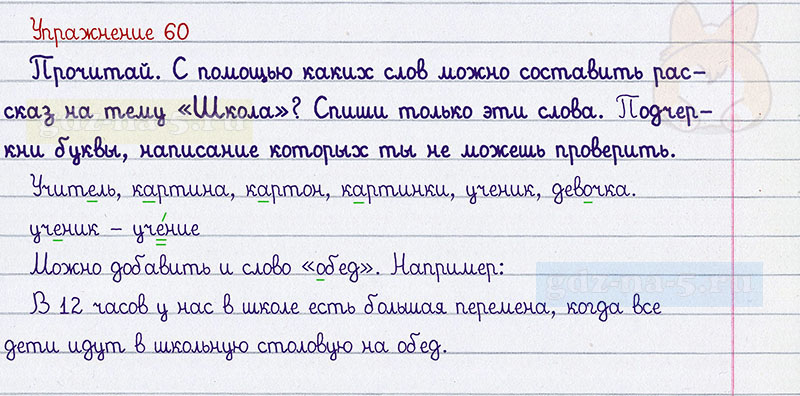 Упражнение 60
Прочитай. С помощью каких слов можно составить рас-
сказ на тему «Школа»? Спиши только эти слова. Подчер-
кни буквы, написание которых ты не можешь проверить.
Учитель, картина, картон, картинки, ученик, девочка.
ученик – уче́ние
Можно добавить и слово «обед». Например:
gdz-na-5.ru
В 12 часов у нас в школе есть большая перемена, когда все
дети идут в школьную столовую на обед.